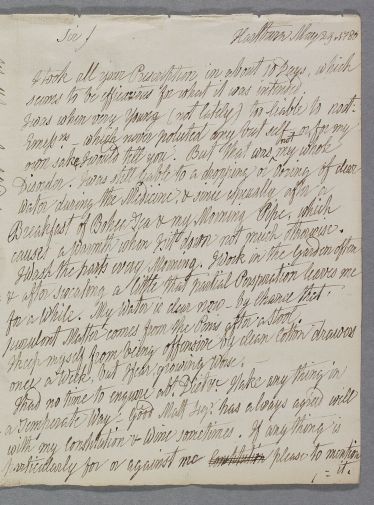 Sir / Hawkhurn May 29. 1780
I took all your Prescription in about 10 Days, which
seems to be efficacious for what it was intended.
I was when very Young (not lately) too liable to
which never polluted any but self, or for my
own sake I would tell you. But that was not my whole
Disorder. I was still liable to a dropping or oozing of clear
Water during the Medicine, & since especially after a
Breakfast of Bohea Tea & my Morning Pipe, which
causes a warmth when I sit down not much otherwise.
I wash the parts every Morning. I work in the Garden often
& after sweating a little that partial Perspiration leaves me
for a while. My Water is clear now - by chance that
purulent Matter comes from the after a stool.
I keep myself from being offensive by clean Cotton drawers
once a Week, but I fear growing worse.
I had no time to enquire wt. Diet or I take any thing in
a Temperate Way. Good Malt has always agreed well
with my Constitution & Wine sometimes. If any thing is
particularly for or against me Constitution please to mention
it.